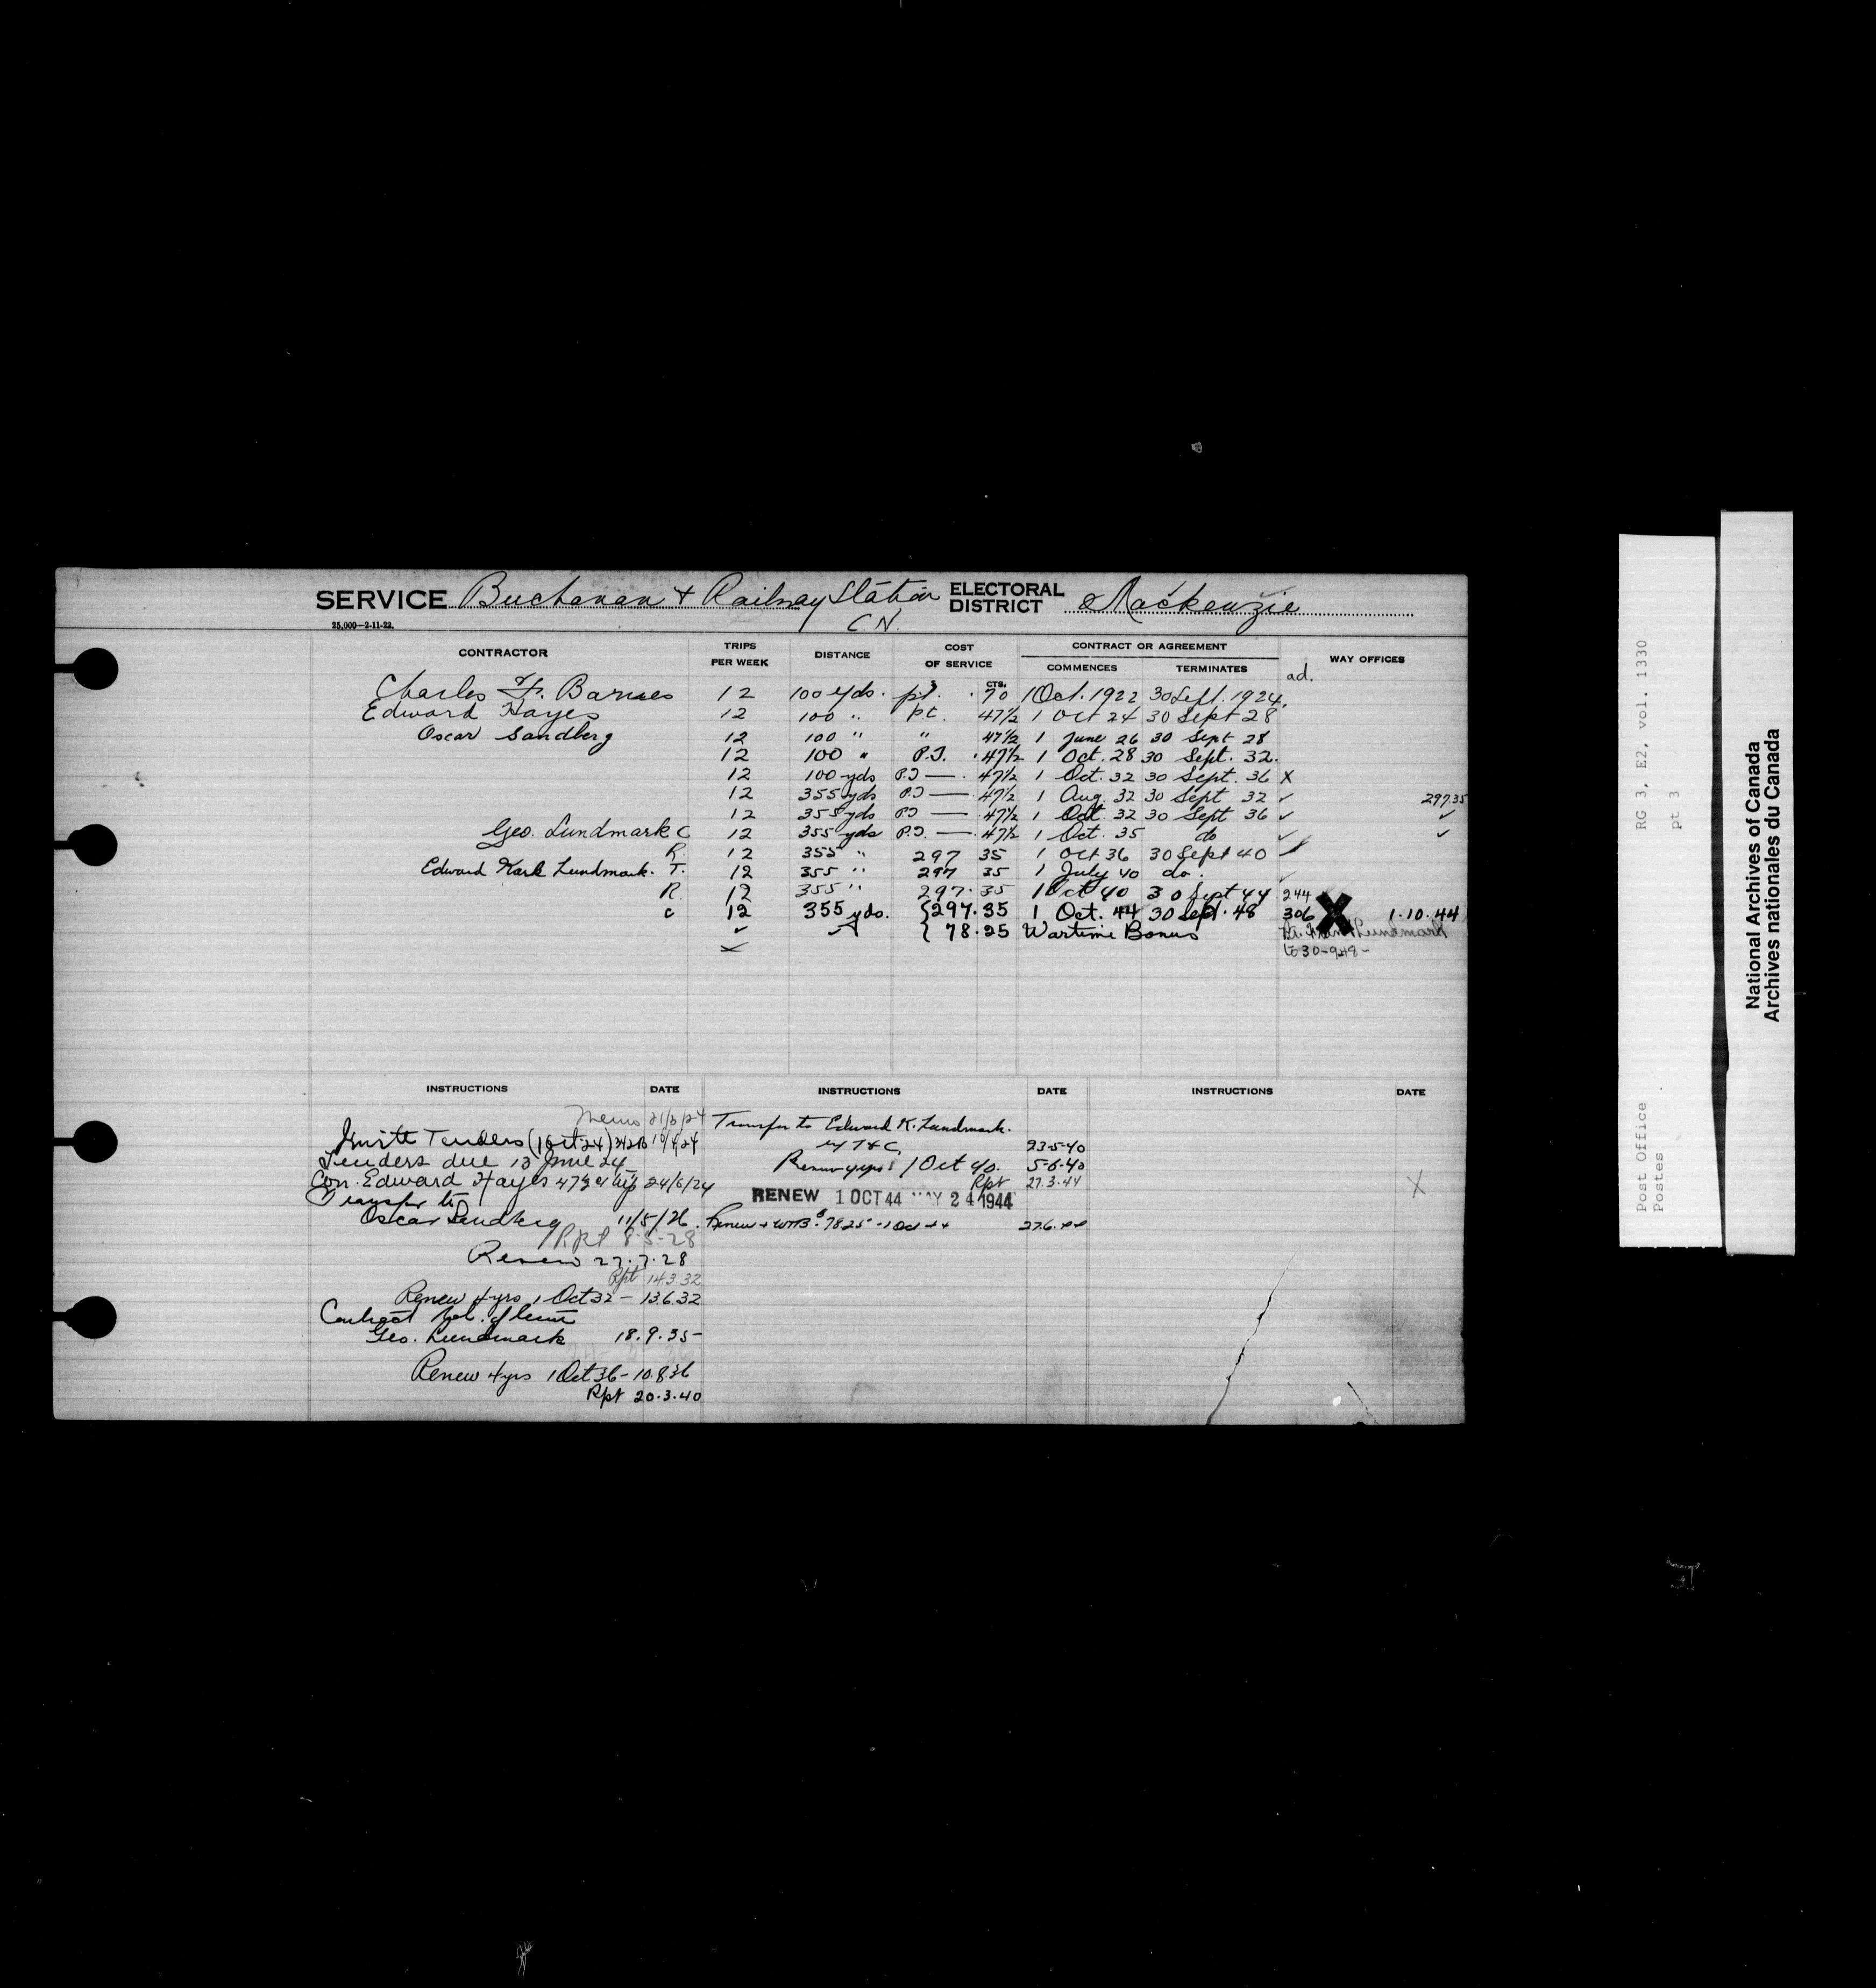 SERVICE Buchanan & Railway Station ELECTORAL DISTRICT Mackenzie
25,000—2-11-22. C.N.
CONTRACTOR TRIPS PER WEEK DISTANCE COST OF SERVICE CONTRACT OR AGREEMENT WAY OFFICES
CTS. COMMENCES TERMINATES ad.
Charles F. Barnes 12 100 yds. p.t. .70 1 Oct. 1922 30 Sept. 1924.
Edward Hayes 12 100 " p.t. 47½ 1 Oct 24 30 Sept 28
Oscar Sandberg 12 100 " " 47½ 1 June 26 30 Sept 28
12 100 " P.T. .47½ 1 Oct. 28 30 Sept. 32.
12 100 yds P.T — . 47½ 1 Oct. 32 30 Sept. 36 X
12 355 yds P.T — . 47½ 1 Aug. 32 30 Sept 32 ✓ 297.35
12 355 yds P.T — . 47½ 1 Oct. 32 30 Sept 36 ✓ ✓
Geo. Lundmark C 12 355 yds P.T. — . 47½ 1 Oct. 35 do ✓ ✓
R. 12 355 " 297 35 1 Oct 36 30 Sept 40 ✓
Edward Karl Lundmark. T. 12 355 " 297 35 1 July 40 do. ✓
R 12 355 " 297.35 1 Oct 40 30 Sept 44 244
C 12 355 yds. {297.35 1 Oct. 44 30 Sept. 48 306 X 1.10.44
✓ { 78.25 Wartime Bonus Lundmark
to 30-9-48-
INSTRUCTIONS DATE INSTRUCTIONS DATE INSTRUCTIONS DATE
Memo 21/3/24
Invite Tenders (1 Oct. 24) 342B 10/4/24
Tenders due 13 June 24
Con. Edward Hayes 47½ 24/6/24
Transfer to
Oscar Sandberg 11/5/26.
Rpt 8-5-28
Renew 27.7.28
Rpt 14.3.32
Renew 4 yrs 1 Oct 32 — 13.6.32
Contract
Geo. Lundmark 18.9.35-
Renew 4 yrs 1 Oct 36 - 10.8.36
Rpt 20.3.40
Transfer to Edward K. Lundmark.
T & C. 23-5-40
Renew 4 yrs 1 Oct 40. 5-6-40
Rpt 27.3.44
RENEW 1 OCT 44 MAY 24 1944
Renew + WTB 78.25 - 1 Oct 44 27.6.44
X
Post Office RG 3, E2, vol. 1330
Postes pt 3
National Archives of Canada
Archives nationales du Canada